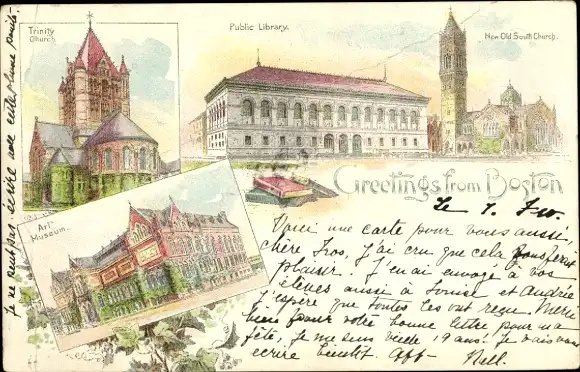 Trinity
Church.
Public Library.
New Old South Church.
Art
Museum.
Greetings from Boston
Le 7.
Voici une carte pour vous aussi,
chère J'ai cru que cela vous ferait
plaisir. J'en ai envoyé à vos
élèves aussi à Louise et Andrée
J'espère que toutes les ont reçu. Merci
bien pour votre bonne lettre pour ma
fête, je me sens vieille 19 ans! Je vais vous
écrire bientôt. Aff Nell.
Je ne peux pas écrire une entre une